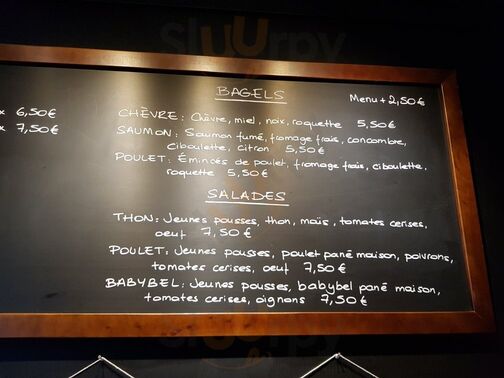 Sluurpy
BAGELS
Menu + 2,50€
x 6,50€
x 7,50€
CHÈVRE : Chèvre, miel, noix, roquette 5,50€
SAUMON : Saumon fumé, fromage frais, concombre,
ciboulette, citron 5,50€
POULET : Émincés de poulet, fromage frais, ciboulette,
roquette 5,50€
SALADES
THON : Jeunes pousses, thon, maïs, tomates cerises,
oeuf 7,50€
POULET : Jeunes pousses, poulet pané maison, poivrons,
tomates cerises, oeuf 7,50€
BABYBEL : Jeunes pousses, babybel pané maison,
tomates cerises, oignons 7,50€
Sluurpy